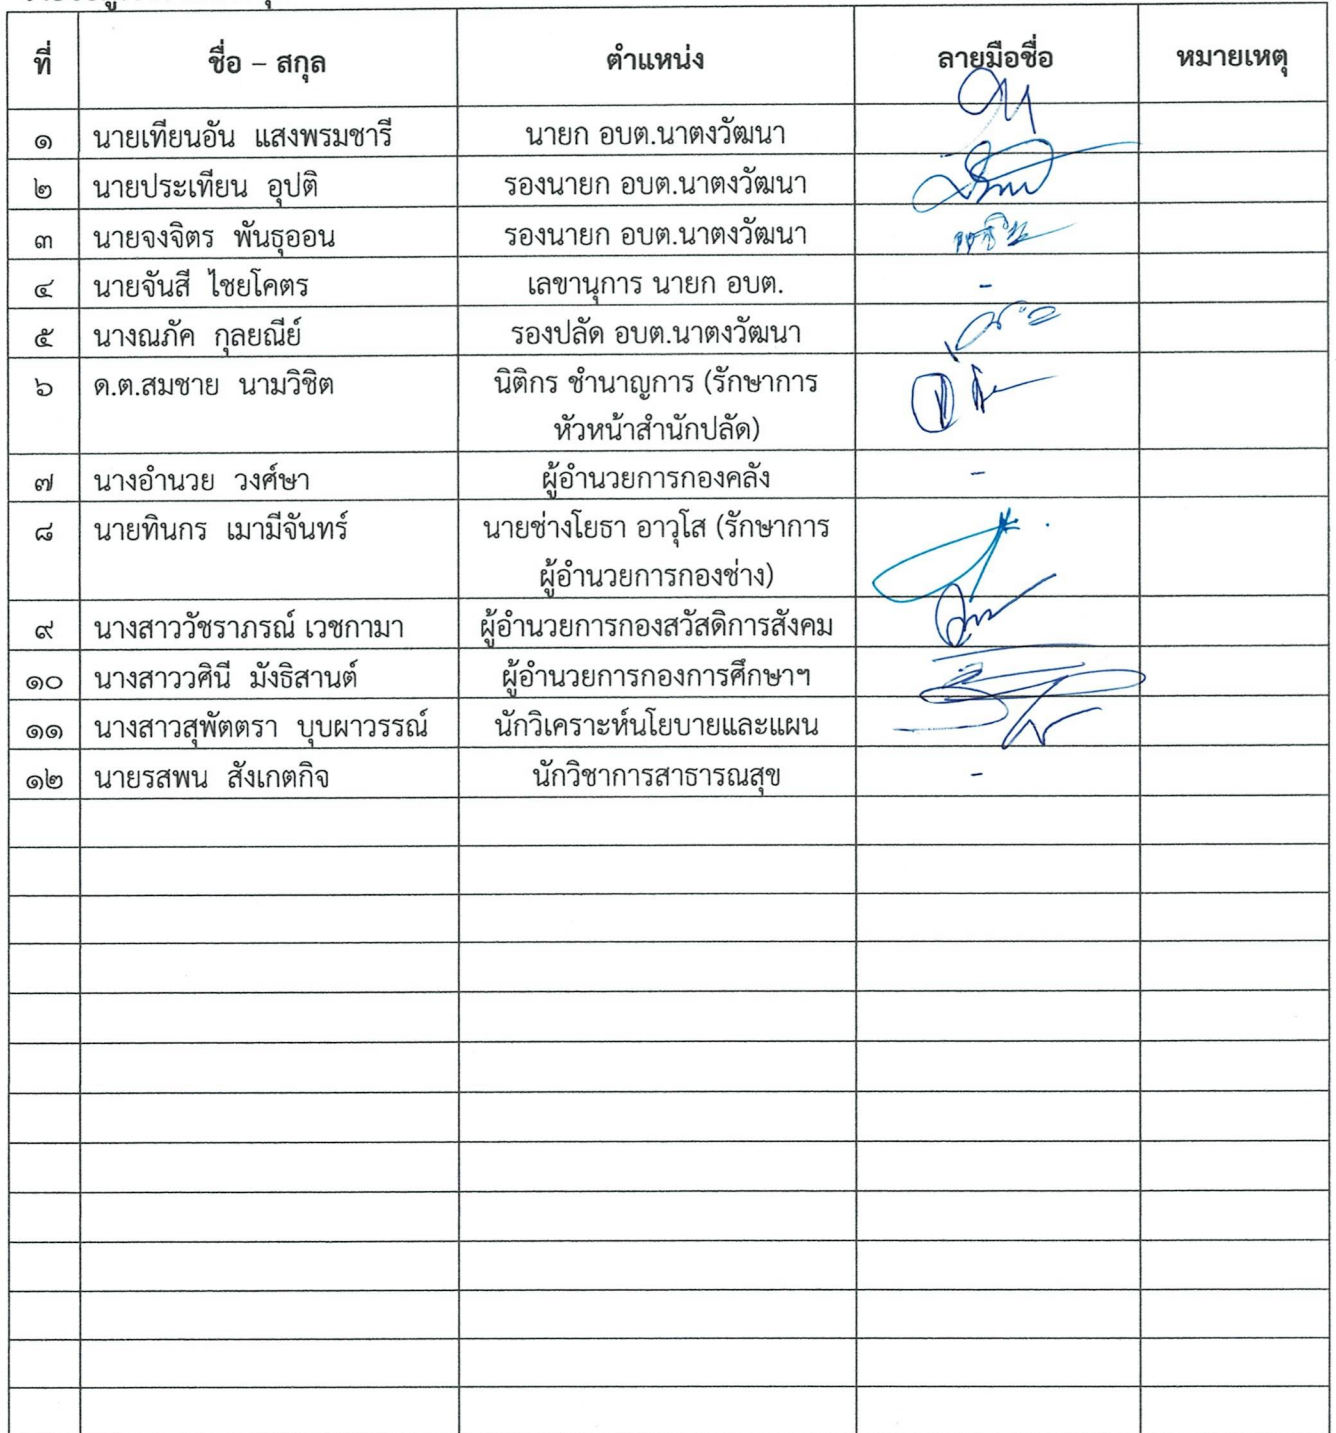 ที่ ชื่อ – สกุล ตำแหน่ง ลายมือชื่อ หมายเหตุ
๑ นายเทียนอัน แสงพรมชารี นายก อบต.นาตงวัฒนา
๒ นายประเทียน อุปติ รองนายก อบต.นาตงวัฒนา
๓ นายจงจิตร พันธุออน รองนายก อบต.นาตงวัฒนา
๔ นายจันสี ไชยโคตร เลขานุการ นายก อบต. -
๕ นางณภัค กุลยณีย์ รองปลัด อบต.นาตงวัฒนา
๖ ด.ต.สมชาย นามวิชิต นิติกร ชำนาญการ (รักษาการ
หัวหน้าสำนักปลัด)
๗ นางอำนวย วงศ์ษา ผู้อำนวยการกองคลัง -
๘ นายทินกร เมามีจันทร์ นายช่างโยธา อาวุโส (รักษาการ
ผู้อำนวยการกองช่าง)
๙ นางสาววัชราภรณ์ เวชกามา ผู้อำนวยการกองสวัสดิการสังคม
๑๐ นางสาววศินี มังธิสานต์ ผู้อำนวยการกองการศึกษาฯ
๑๑ นางสาวสุพัตตรา บุบผาวรรณ์ นักวิเคราะห์นโยบายและแผน
๑๒ นายรสพน สังเกตกิจ นักวิชาการสาธารณสุข -